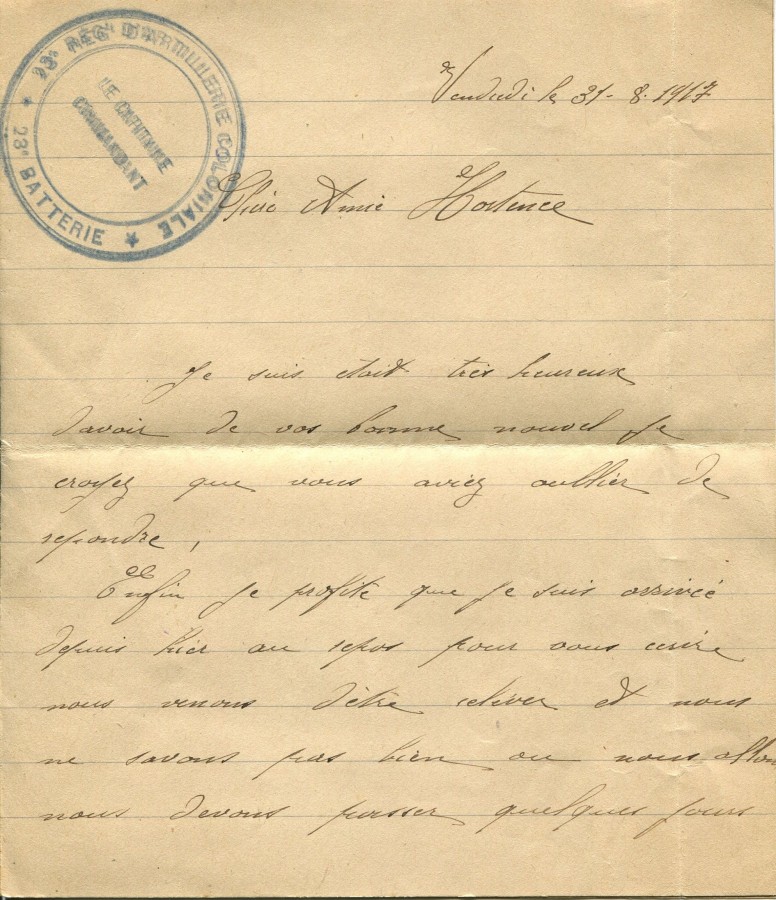 REGt D'ARTILLERIE COLONIALE
★ 23e BATTERIE ★
LE CAPITAINE
COMMANDANT
Vendredi le 31-8-1917
Chère Amie Hortence
Je suis était très heureux
davoir de vos bonne nouvel je
croyez que vous aviez oublier de
repondre,
Enfin je profite que je suis arrivée
depuis hier au repos pour vous ecrire
nous venons d'être reliver et nous
ne savons pas bien ou nous allon
nous devons passer quelques jours